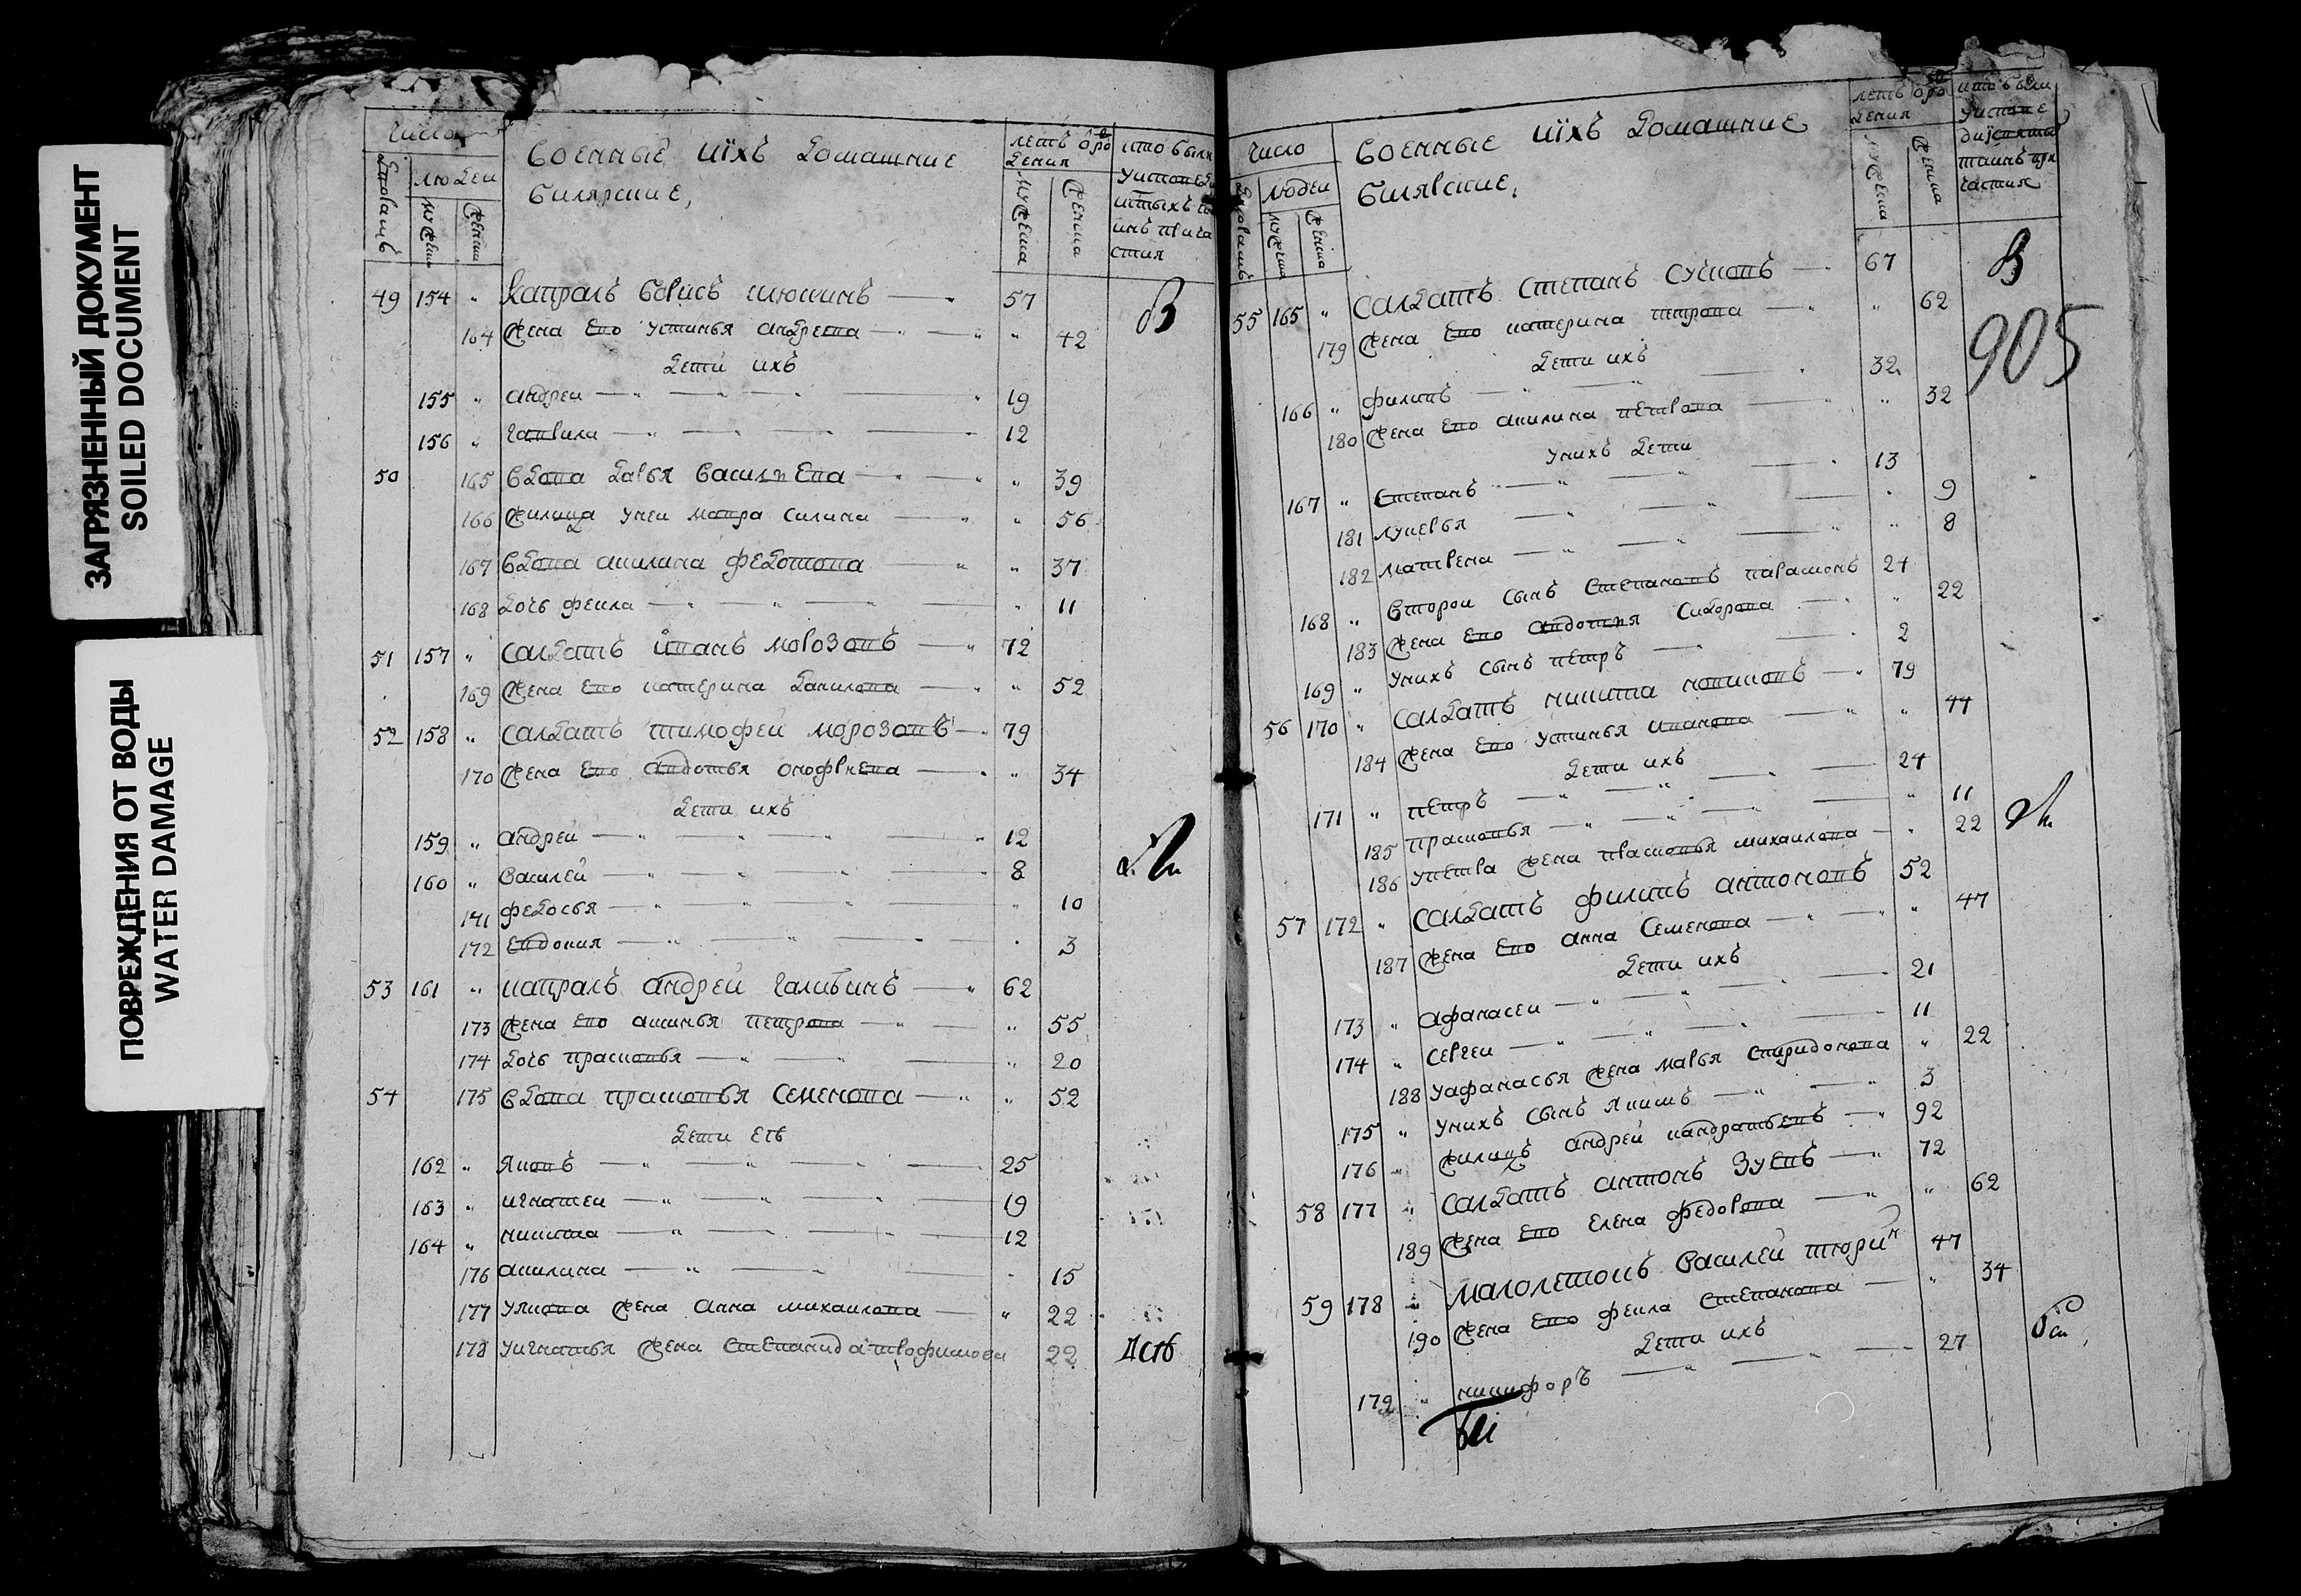 ЗАГРЯЗНЕННЫЙ ДОКУМЕНТ
SOILED DOCUMENT
ПОВРЕЖДЕНИЯ ОТ ВОДЫ
WATER DAMAGE
число
дворовъ
людеи
мужеска
женска
военные ихъ домашние
билярские,
летъ от рож
дения
мужеска
женска
49 154 „ капралъ борисъ 57 В
164 жена ево устинья андреева „ 42
дети ихъ
155 „ андреи 19
156 „ гаврила 12
50 165 вдова дарья василиева „ 39
166 жилица у неи мавра силина „ 56
167 вдова акилина федотова „ 37
168 дочь фекла „ 11
51 157 „ салдатъ иванъ морозовъ 72
169 жена ево катерина данилова „ 52
52 158 „ салдатъ тимофеи морозовъ 79
170 жена ево авдотья онофриева „ 34
дети ихъ
159 „ андреи 12
160 „ василеи 8
171 федосья „ 10
172 евдокия 3
53 161 „ капралъ андреи галибинъ 62
173 жена ево аксинья петрова „ 55
174 дочь прасковья „ 20
54 175 вдова прасковья семенова „ 52
дети еть
162 „ яковъ 25
163 „ игнатеи 19
164 „ никита 12
176 акилина 15
177 уякова жена анна михаилова „ 22
178 уигнатья жена степанида трофимова 22
число
дворовъ
людеи
мужеска
женска
военные ихъ домашние
билярские,
летъ от рож
дения
мужеска
женска
55 165 „ салдатъ степанъ 67 В
179 жена ево катерина петрова „ 62
905
дети ихъ
166 „ филипъ 32
180 жена ево акилина петрова „ 32
унихъ дети
167 „ степанъ 13
181 лукерья 9
182 матрена „ 8
168 „ второи сынъ степановъ парамонъ 24
183 жена ево авдотья сидорова „ 22
169 „ унихъ сынъ петръ 2
56 170 „ салдатъ никита новиковъ 79
184 жена ево устинья иванова „ 44
дети ихъ
171 „ петръ 24
185 прасковья „ 11
186 упетра жена прасковья михаилова „ 22
57 172 „ салдатъ филипъ антоновъ 52
187 жена ево анна семенова „ 47
дети ихъ
173 „ афанасеи 21
174 „ сергеи 11
188 уафанасья жена марья спиридонова „ 22
175 „ унихъ сынъ якимъ 3
176 „ жилецъ андреи кандратьевъ 92
58 177 „ салдатъ антонъ зуевъ 72
189 жена ево елена федорова „ 62
59 178 „ малолетокъ василеи тюринъ 47
190 жена ево фекла степанова „ 34
дети ихъ
179 „ никифоръ 27